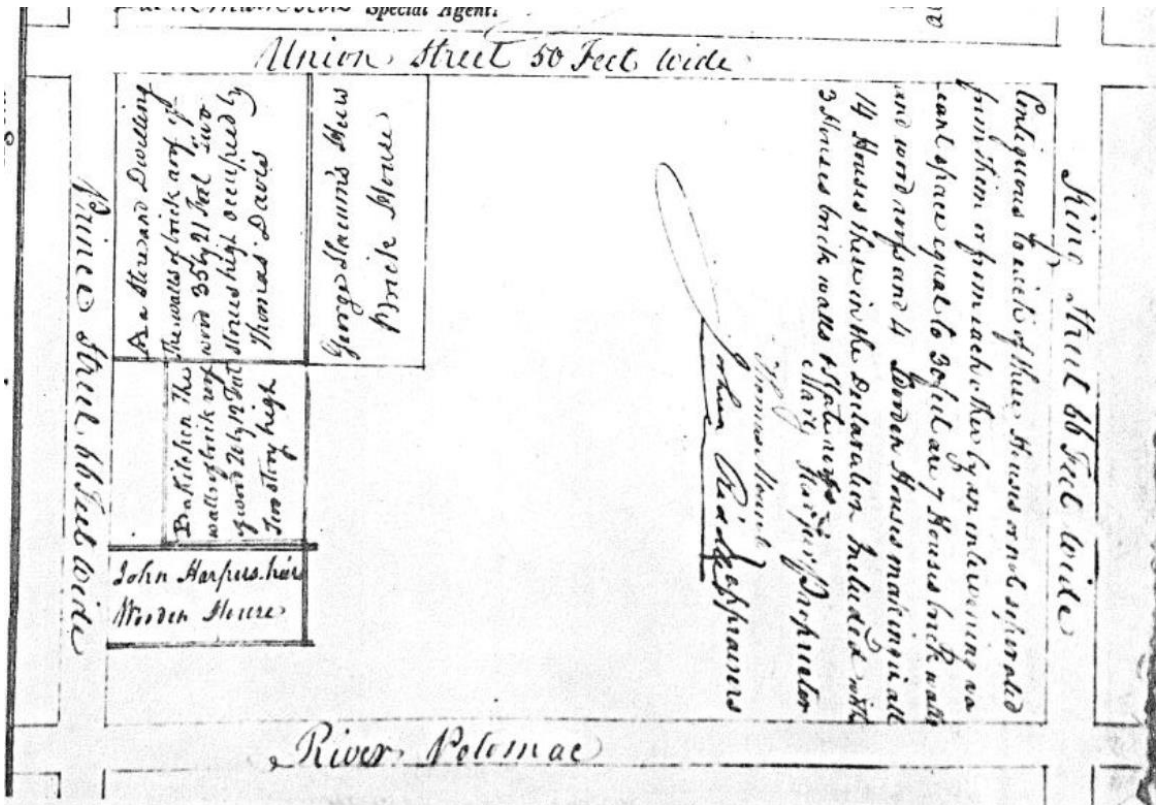 Special Agent.
Union Street 50 Feet wide
Prince Street 66 Feet wide
A a Store and Dwelling
The walls of brick roof of
wood 35 by 21 Feet two
stories high occupied by
Thomas Davis
George Slacum's Heirs
Brick House
B a Kitchen The
walls of brick roof
of wood 20 by 17 Feet
Two story high
John Harpers heirs
Wooden House
King Street 66 Feet wide
Contiguous to each of these Houses or not seperated
from them or from each other by an intervening va
cant space equal to 30 feet are 7 Houses brick walls
and wood roofs and 4 Wooden Houses making in all
14 Houses there in the Declaration Included with
3 Houses brick walls & slate roofs
Mary Harper Proprietor
Thomas
John appraisers
River Potomac